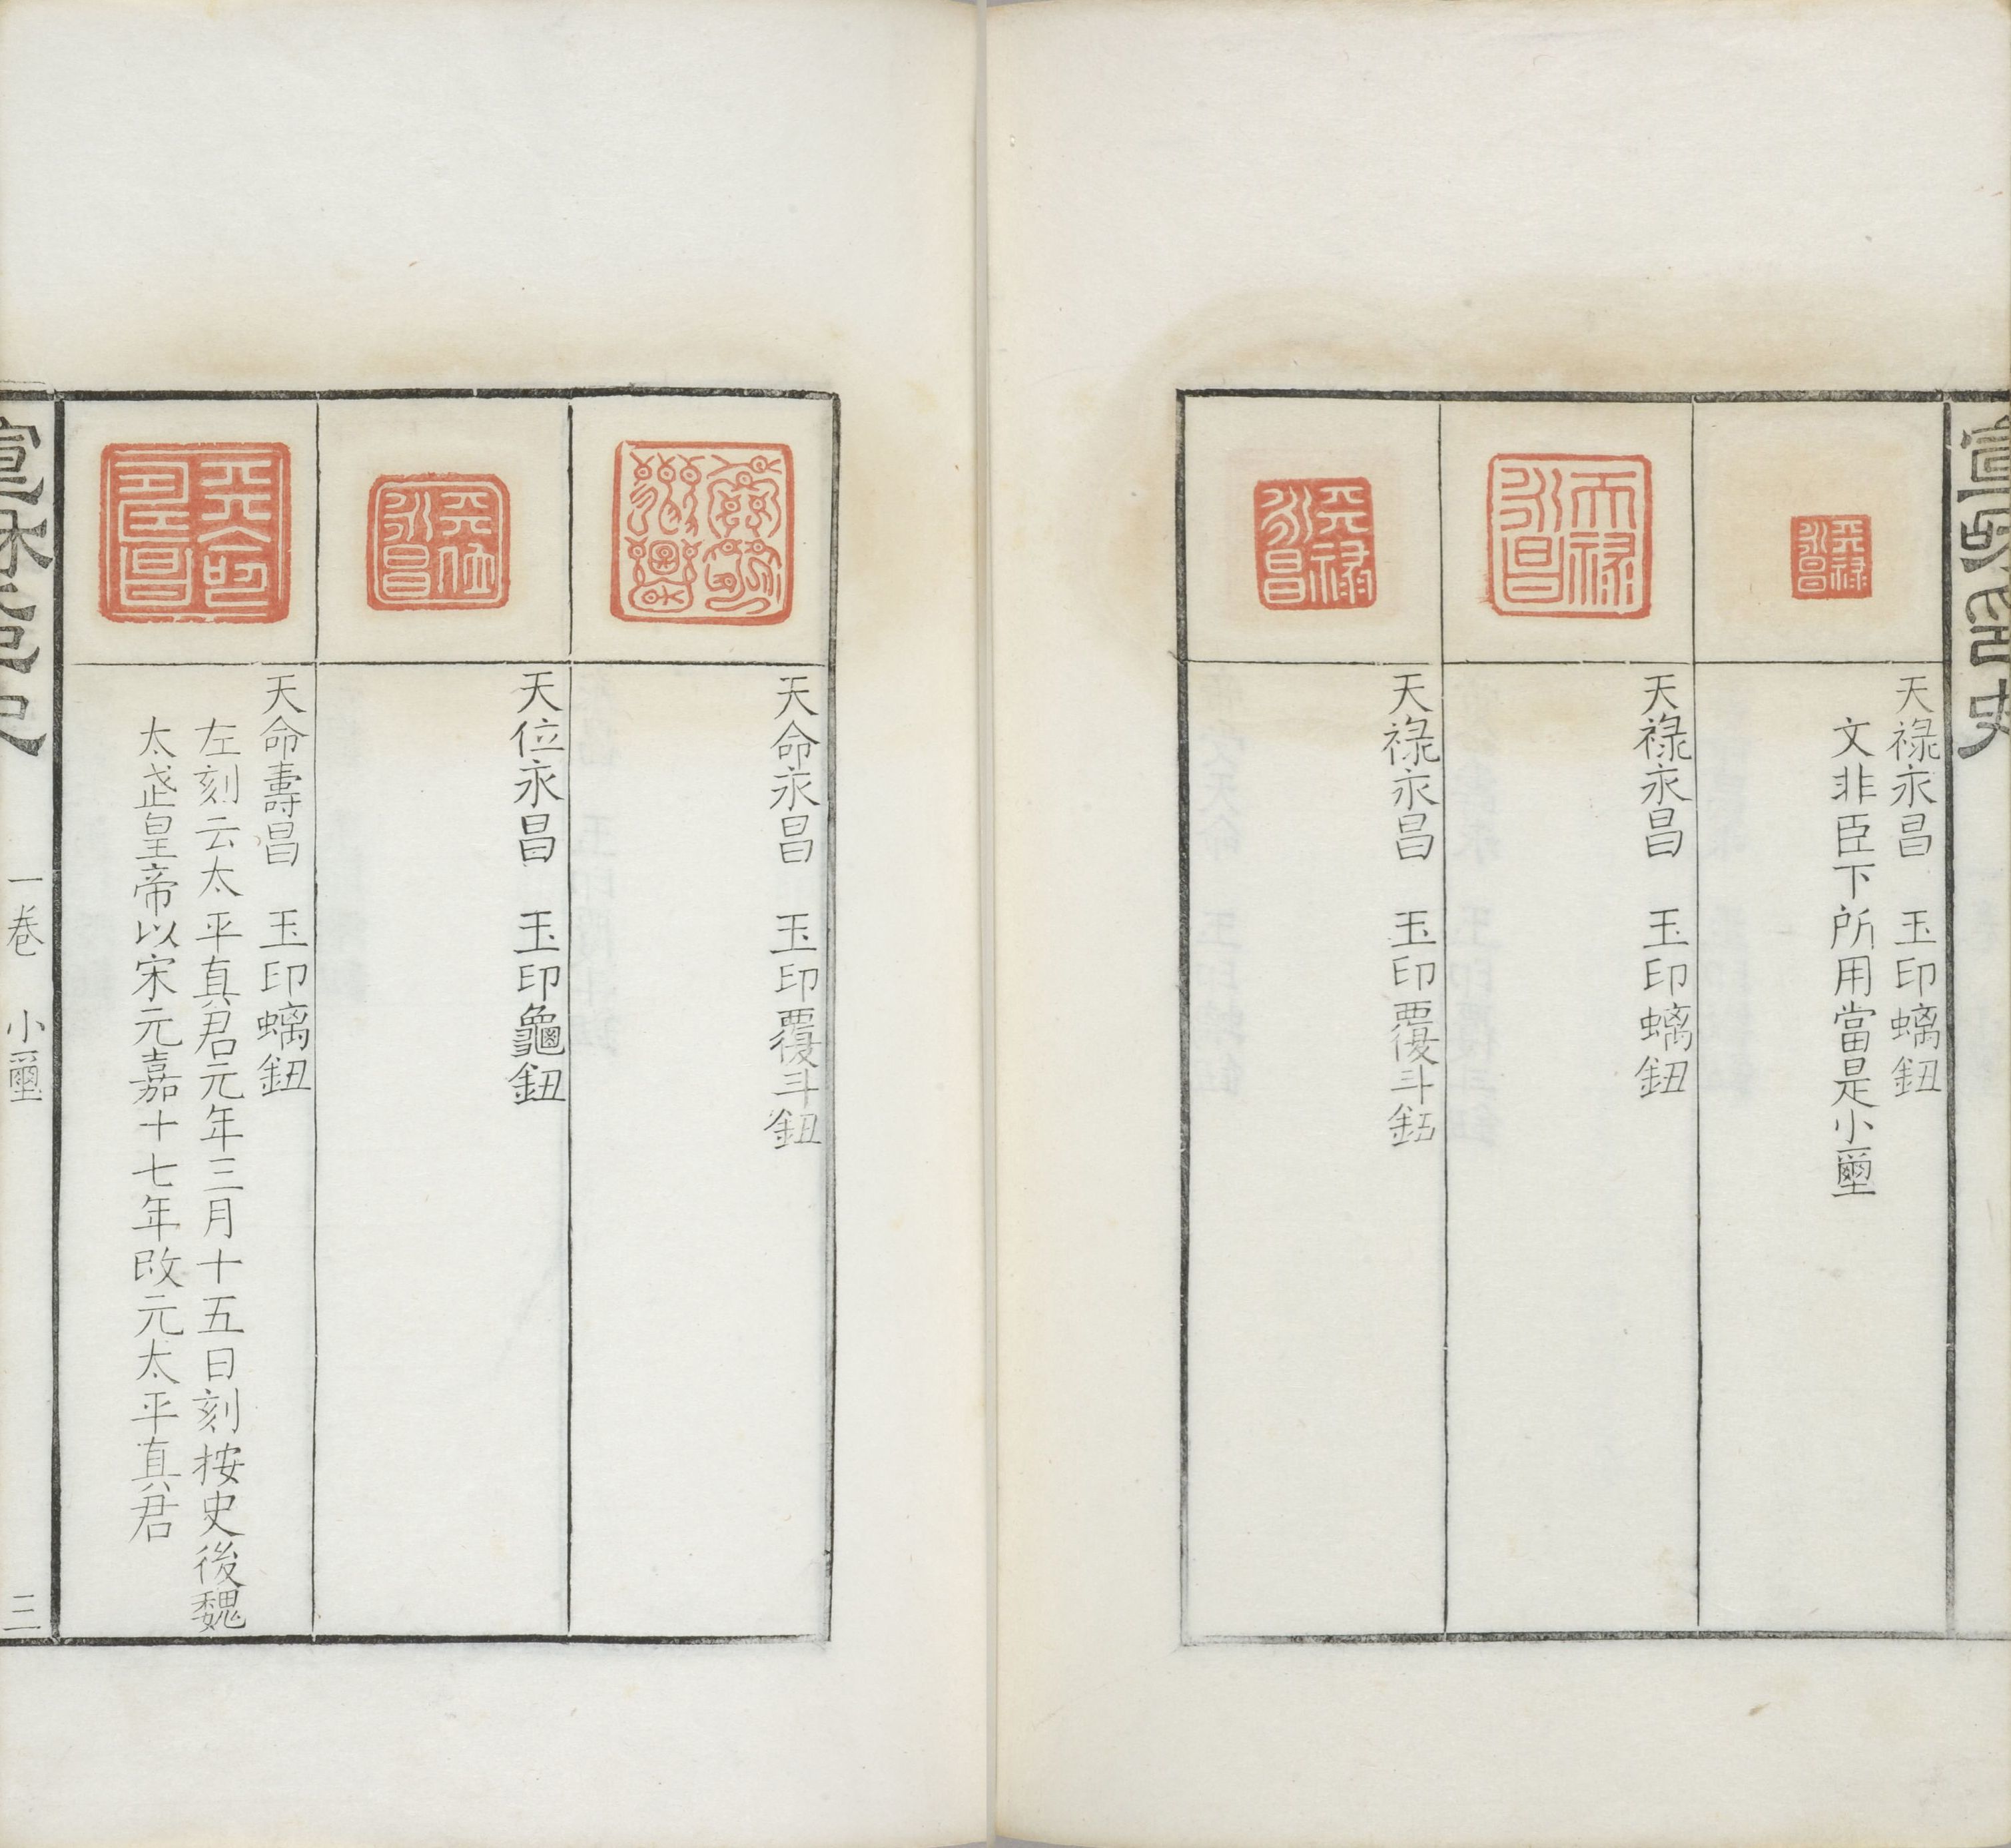 宣和印史
天祿永昌　玉印螭鈕
文非臣下所用當是小璽
天祿永昌
天祿永昌　玉印螭鈕
天祿永昌
天祿永昌　玉印覆斗鈕
天祿永昌
天命永昌　玉印覆斗鈕
天位永昌　玉印龜鈕
天位永昌
天命壽昌　玉印螭鈕
左刻云太平真君元年三月十五日刻按史後魏
太武皇帝以宋元嘉十七年改元太平真君
宣和印史
一卷　小璽
三